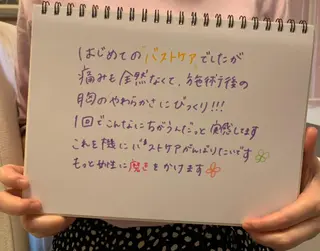 はじめての バストケアでしたが
痛みも全然なくて、施術後の
胸のやわらかさにびっくり!!!
1回でこんなにちがうんだっと実感してます
これを機にバストケアがんばりたいです
もっと女性に磨きをかけます